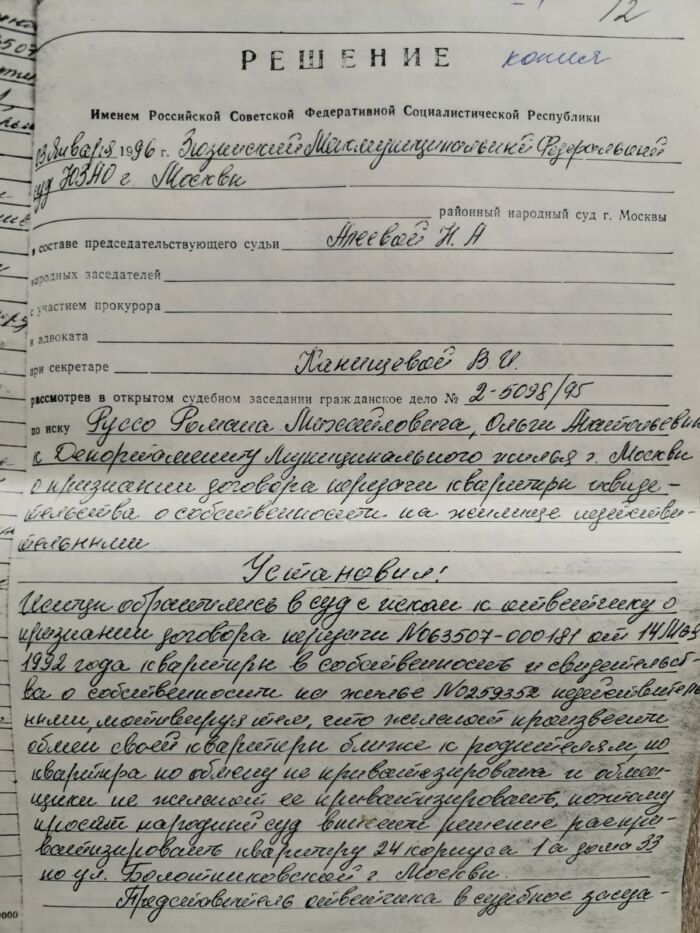 12
РЕШЕНИЕ копия
Именем Российской Советской Федеративной Социалистической Республики
03 января 1996 г. Зюзинский Межмуниципальный Федеральный
суд ЮЗАО г. Москвы
районный народный суд г. Москвы
в составе председательствующего судьи Агеевой Н.А
народных заседателей
с участием прокурора
и адвоката
при секретаре Канищевой В.И.
рассмотрев в открытом судебном заседании гражданское дело № 2-5098/95
по иску Руссо Романа Михайловича, Ольги Анатольевны
к Департаменту Муниципального жилья г. Москвы
о признании договора передачи квартиры и свиде-
тельства о собственности на жилище недействи-
тельными
Установил!
Истцы обратились в суд с иском к ответчику о
признании договора передачи N063507-000181 от 14
1992 года квартиры в собственность и свидетельст
ва о собственности на жилье N0259352 недействитель
ными, мотивируя тем, что желают произвести
обмен своей квартиры ближе к родителям, но
квартира по обмену не приватизирована и обмен-
щики не желают ее приватизировать, поэтому
просят народный суд вынести решение расприв-
ватизировать квартиру 24 корпуса 1а дома 33
по ул. Болотниковской г. Москвы.
Представитель ответчика в судебное заседа-